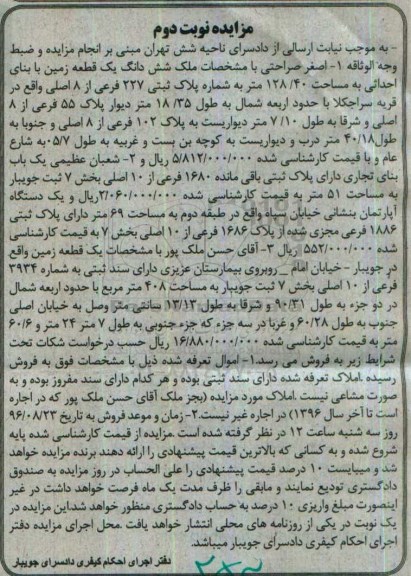 مزایده نوبت دوم
- به موجب نیابت ارسالی از دادسرای ناحیه شش تهران مبنی بر انجام مزایده و ضبط
وجه الوثاقه ۱- اصغر صراحتی با مشخصات ملک شش دانگ یک قطعه زمین با بنای
احداثی به مساحت ۱۲۸/۴۰ متر به شماره پلاک ثبتی ۲۲۷ فرعی از ۸ اصلی واقع در
قریه سراجکلا با حدود اربعه شمال به طول ۱۸/۳۵ متر دیوار پلاک ۵۵ فرعی از ۸
اصلی و شرقا به طول ۷/۱۰ متر دیواریست به پلاک ۱۰۲ فرعی از ۸ اصلی و جنوبا به
طول۴۰/۱۸ متر درب و دیواریست به کوچه بن بست و غربیه به طول ۰۵/۷به شارع
عام و با قیمت کارشناسی شده ۵/۸۱۲/۰۰۰/۰۰۰ ریال و ۲- شعبان عظیمی یک باب
بنای تجاری دارای پلاک ثبتی باقی مانده ۱۶۸۰ فرعی از ۱۰ اصلی بخش ۷ ثبت جویبار
به مساحت ۵۱ متر به قیمت کارشناسی شده ۲/۰۶۰/۰۰۰/۰۰۰ریال و یک دستگاه
آپارتمان بنشانی خیابان سپاه واقع در طبقه دوم به مساحت ۶۹ متر دارای پلاک ثبتی
۱۸۸۶ فرعی مجزی شده از پلاک ۱۶۸۶ فرعی از ۱۰ اصلی بخش ۷ به قیمت کارشناسی
شده ۵۵۲/۰۰۰/۰۰۰ ریال ۳- آقای حسن ملک پور با مشخصات یک قطعه زمین واقع
در جویبار - خیابان امام _ روبروی بیمارستان عزیزی دارای سند ثبتی به شماره ۳۹۳۴
فرعی از ۱۰ اصلی بخش ۷ ثبت جویبار به مساحت ۴۰۸ متر مربع با حدود اربعه شمال
در دو جزء به طول ۹۰/۳۱ و شرقا به طول ۱۳/۱۳ سانتی متر وصل به خیابان اصلی
جنوب به طول ۶۰/۲۸ و غربا در سه جزء که جزء جنوبی به طول ۷ متر ۲۴ متر و ۶۰/۶
متر به قیمت کارشناسی شده ۱۶/۸۸۰/۰۰۰/۰۰۰ ریال حسب درخواست شکات تحت
شرایط زیر به فروش می رسد.۱- اموال تعرفه شده ذیل با مشخصات فوق به فروش
رسیده .املاک تعرفه شده دارای سند ثبتی بوده و هر کدام دارای سند مفروز بوده و به
صورت مشاعی نیست .املاک مورد مزایده (بجز ملک آقای حسن ملک پور که در اجاره
است تا آخر سال ۱۳۹۶) در اجاره غیر نیست.۲- زمان و موعد فروش به تاریخ ۹۶/۰۸/۲۳
روز سه شنبه ساعت ۱۲ در نظر گرفته شده است .مزایده از قیمت کارشناسی شده پایه
شروع شده و به کسانی که بالاترین قیمت پیشنهادی را ارائه دهند برنده مزایده خواهد
شد و میبایست ۱۰ درصد قیمت پیشنهادی را علی الحساب در روز مزایده به صندوق
دادگستری تودیع نمایند و مابقی را ظرف مدت یک ماه فرصت خواهد داشت در غیر
اینصورت مبلغ واریزی ۱۰ درصد به حساب دادگستری منظور خواهد شد.این مزایده در
یک نوبت در یکی از روزنامه های محلی انتشار خواهد یافت .محل اجرای مزایده دفتر
اجرای احکام کیفری دادسرای جویبار میباشد.
دفتر اجرای احکام کیفری دادسرای جویبار